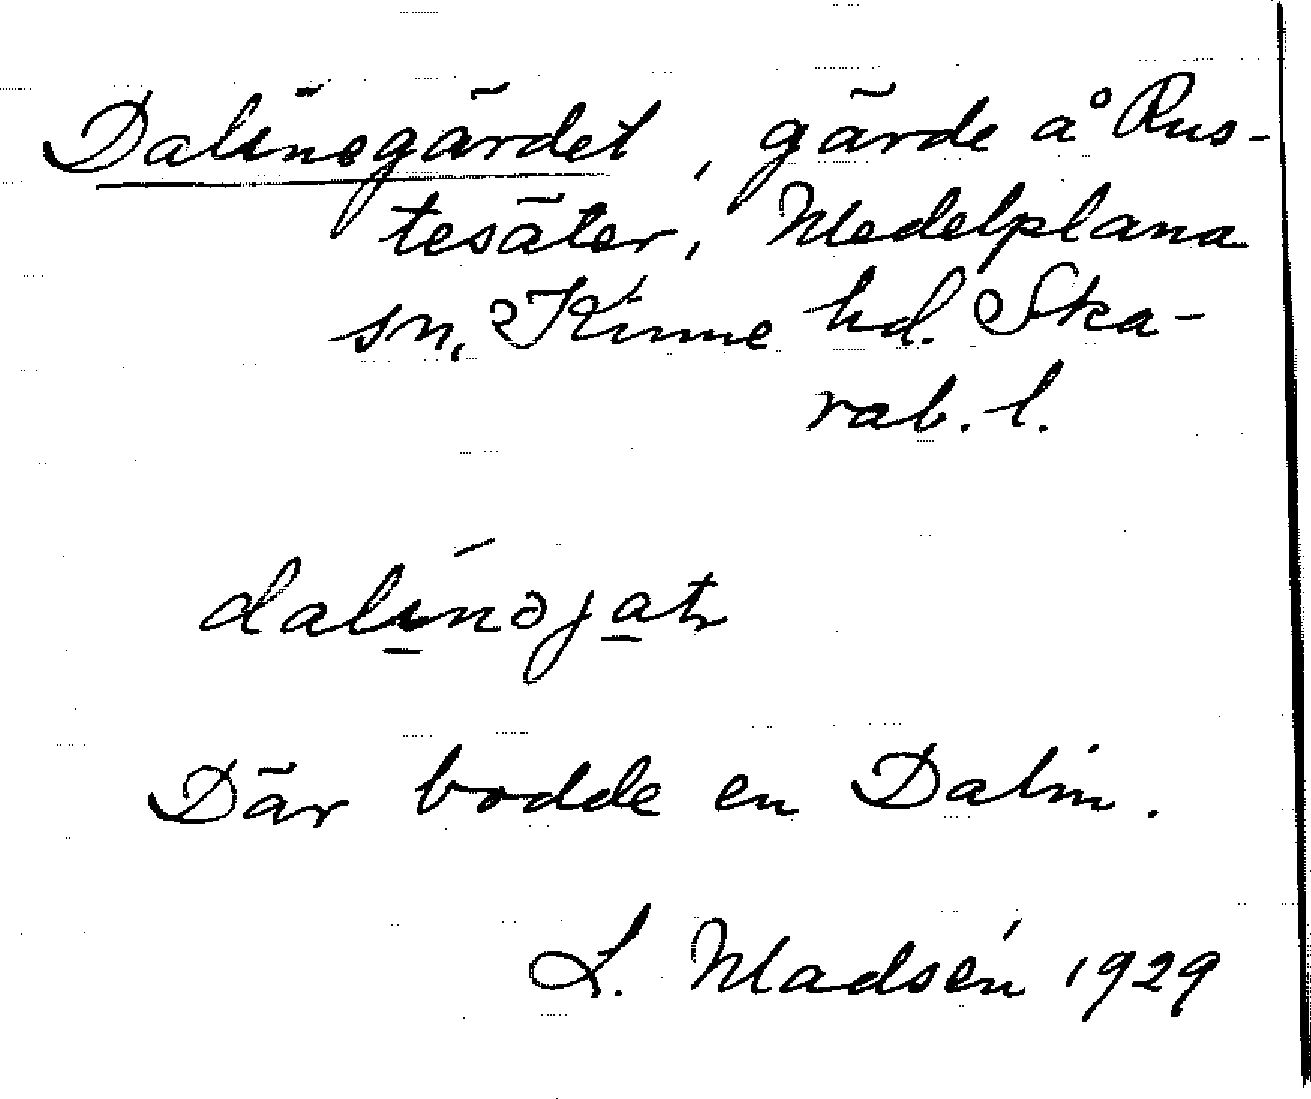 Dalinsgärdet, gärde å Rus-
tesäter, Medelplana
sn, Kinne hd. Ska-
rab. l.
Där bodde en Dalin.
L. Madsén 1929